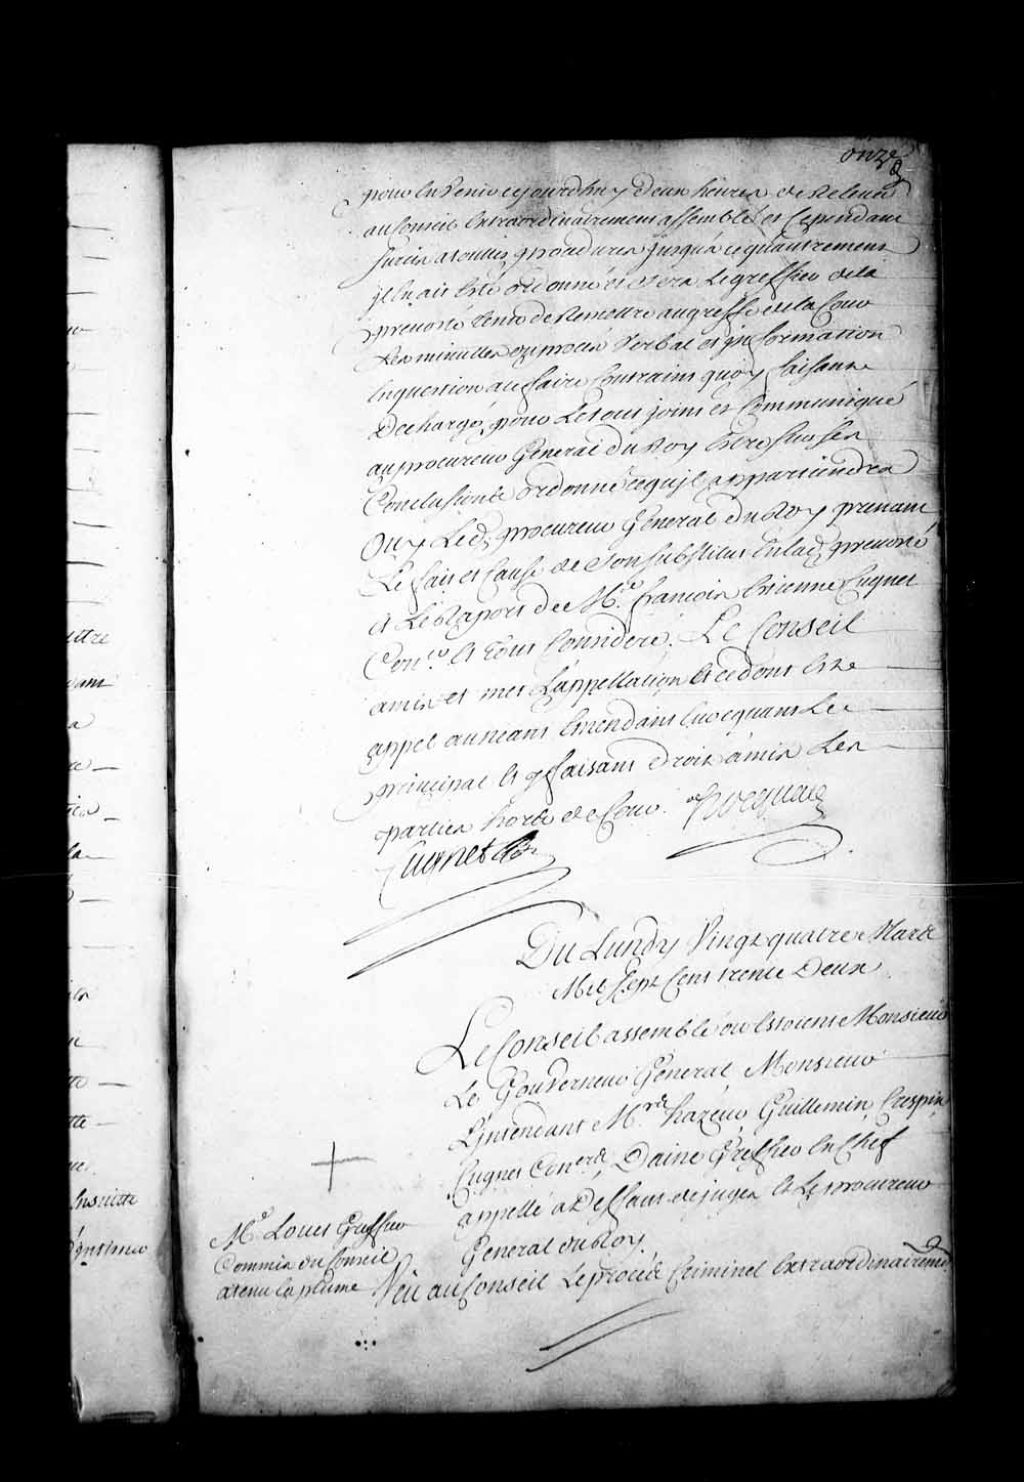 onze
pour En Venir cejourdhuy deux heures de Relevée
au Conseil Extraordinairement assemblé et Cependant
surcis a touttes procedures jusqu'a ce qu'autrement
jl En ait Eté ordonné et sera Le greffier de la
prevosté tenu de Remettre au greffe de la Cour
Les minuttes du procés Verbal et jnformation
En question a ce faire Contraint quoy faisant
Dechargé, pour Le tout joint et Communiqué
au procureur General du Roy Etre sur ses
Conclusions ordonné ce qu'jl appartiendra
Ouy Led. procureur General du Roy prenant
Le fait et Cause de Son Substitut En lad. prevosté
et Le Raport de Me. francois Etienne Cugnet
Coner. Et tout Consideré. Le Conseil
a mis et met L'appellation Et ce dont Est
appel au neant Emendant Evocquant Le
principal Et y faisant droit a mis Les
parties hors de Cour. Hocquart
Cugnet
Du Lundy Vingt quatre Mars
Mil Sept Cens trente Deux
Le Conseil assemblé ou Estoient Monsieur
Le Gouverneur General Monsieur
L'jntendant Mrs. hazeur Guillemin Crespin
Cugnet Coners. Daine Greffier En Chef
appellé a Deffaut de juges et Le procureur
General du Roy.
Me Louet Greffier
Commis du Conseil
a tenu la plume
Veu au Conseil Le procés Criminel Extraordinairement